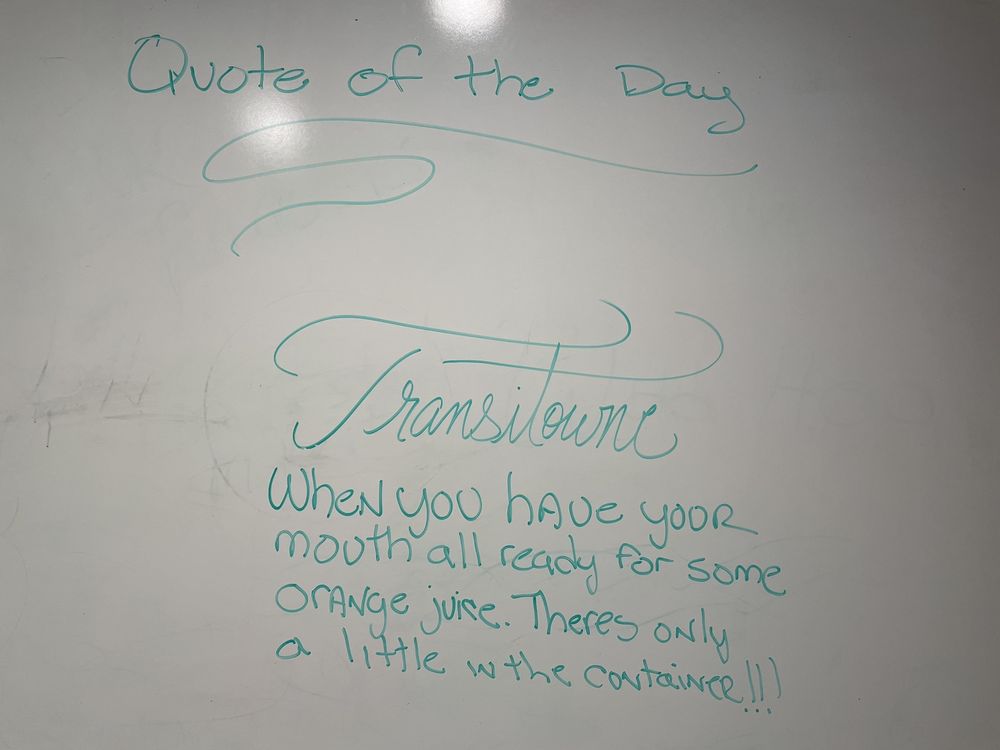 Quote of the Day
Transitowne
When you have your
mouth all ready for some
orange juice. Theres only
a little in the container!!!